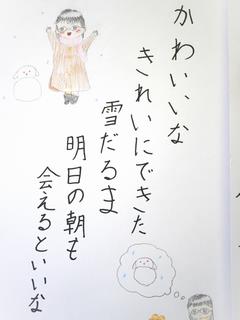 かわいいな
きれいにできた
雪だるま
明日の朝も
会えるといいな